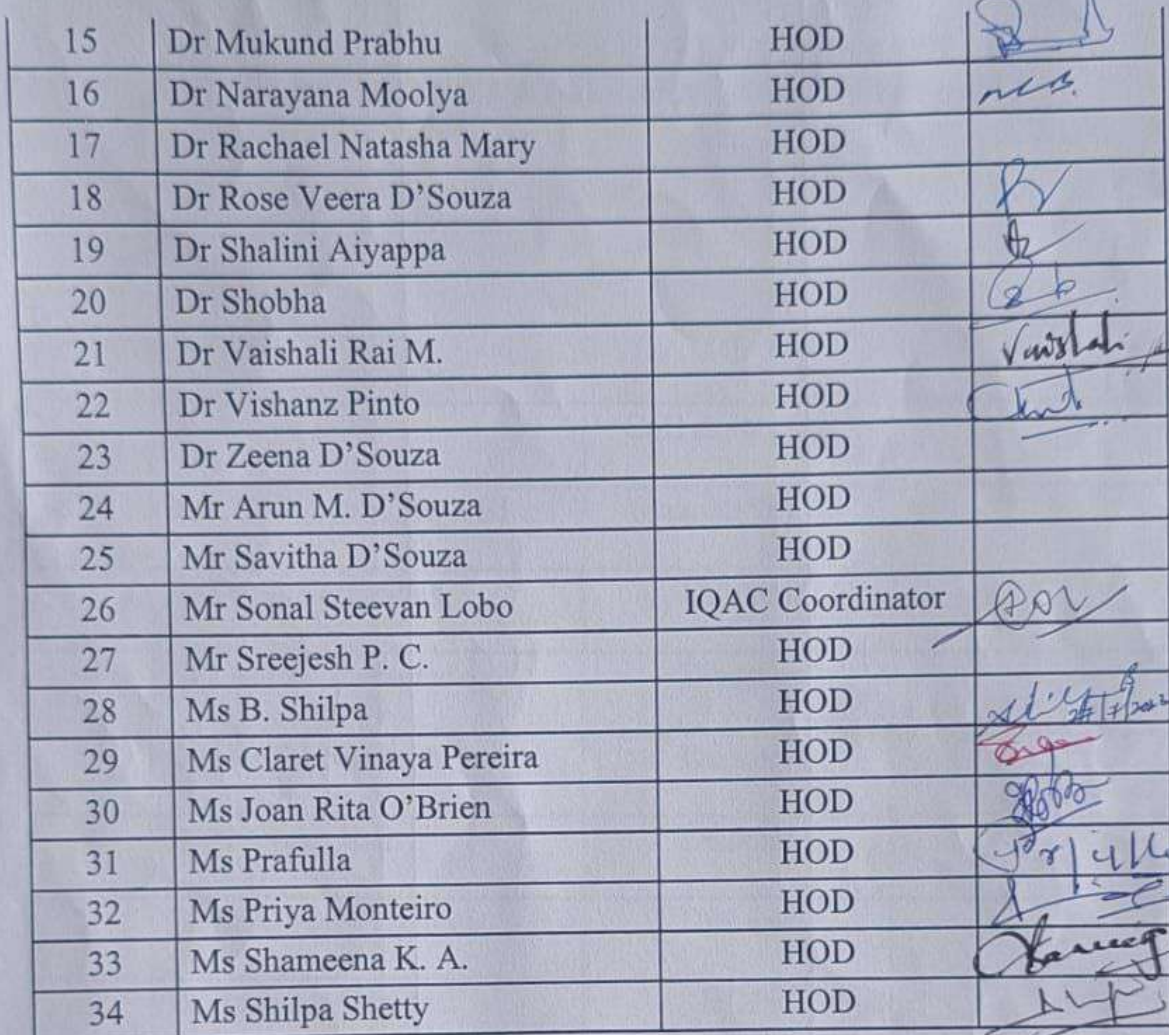 15 Dr Mukund Prabhu HOD
16 Dr Narayana Moolya HOD
17 Dr Rachael Natasha Mary HOD
18 Dr Rose Veera D'Souza HOD
19 Dr Shalini Aiyappa HOD
20 Dr Shobha HOD
21 Dr Vaishali Rai M. HOD Vaishali
22 Dr Vishanz Pinto HOD
23 Dr Zeena D'Souza HOD
24 Mr Arun M. D'Souza HOD
25 Mr Savitha D'Souza HOD
26 Mr Sonal Steevan Lobo IQAC Coordinator
27 Mr Sreejesh P. C. HOD
28 Ms B. Shilpa HOD
29 Ms Claret Vinaya Pereira HOD
30 Ms Joan Rita O'Brien HOD
31 Ms Prafulla HOD
32 Ms Priya Monteiro HOD
33 Ms Shameena K. A. HOD
34 Ms Shilpa Shetty HOD